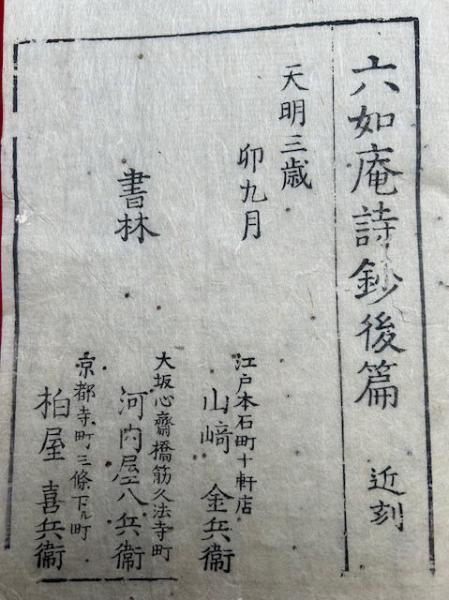 六如庵詩鈔後篇 近刻
天明三歳
卯九月
書林
江戸本石町十軒店
山﨑 金兵衞
大坂心齋橋筋久法寺町
河内屋八兵衞
京都寺町三條下ル町
柏屋 喜兵衞